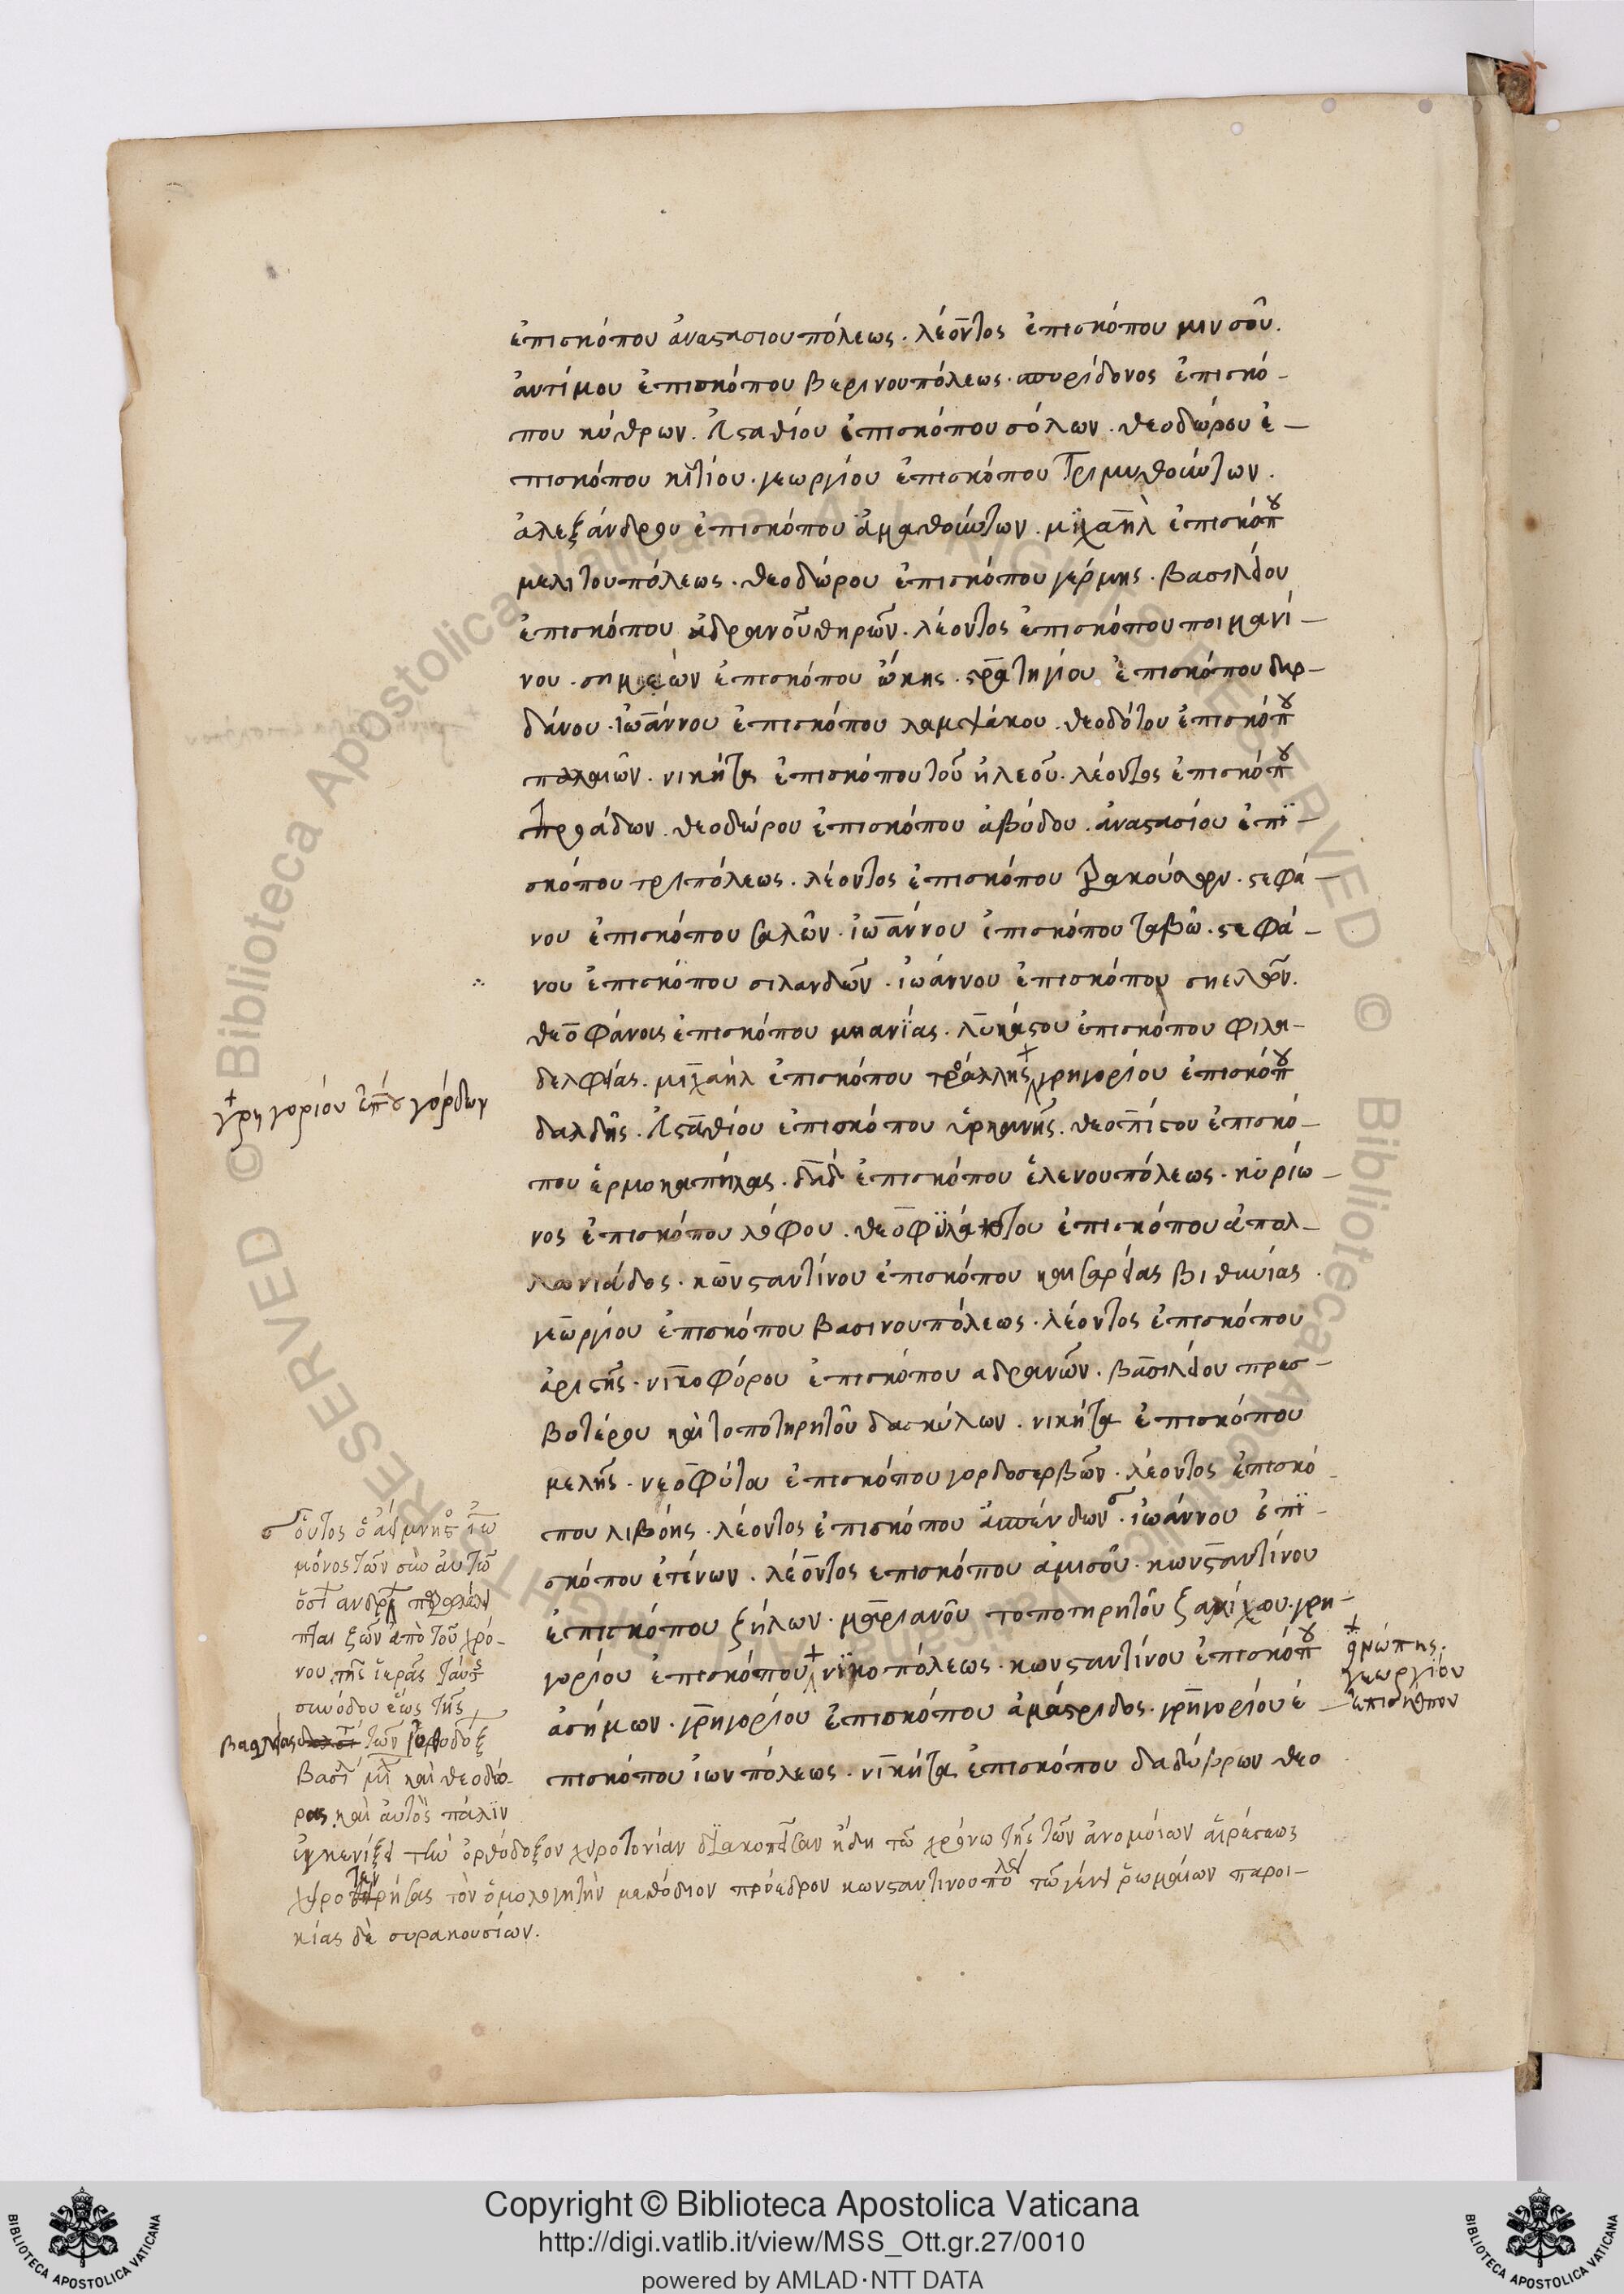 ἐπισκόπου ἀναστασιουπόλεως. λέοντος ἐπισκόπου μινσοῦ.
ἀντίμου ἐπισκόπου βερινουπόλεως. σπυρίδονος ἐπισκό-
που κύθρων. εὐσταθίου ἐπισκόπου σόλων. θεοδώρου ἐ-
πισκόπου κιτίου. γεωργίου ἐπισκόπου τριμυθούντων.
ἀλεξάνδρου ἐπισκόπου ἀμαθούντων. μιχαὴλ ἐπισκόπου
μελιτουπόλεως. θεοδώρου ἐπισκόπου γέρμης. βασιλείου
ἐπισκόπου ἀδριανοῦθηρῶν. λέοντος ἐπισκόπου ποιμανί-
νου. συμεὼν ἐπισκόπου ὤκης. στρατηγίου ἐπισκόπου δαρ-
δάνου. ἰωάννου ἐπισκόπου λαμψάκου. θεοδότου ἐπισκόπου
παλαιῶν. νικήτα ἐπισκόπου τοῦ ἠλεοῦ. λέοντος ἐπισκόπου
τρωάδων. θεοδώρου ἐπισκόπου ἀβύδου. ἀναστασίου ἐπι-
σκόπου τριπόλεως. λέοντος ἐπισκόπου τρακούλων. στεφά-
νου ἐπισκόπου σαλῶν. ἰωάννου ἐπισκόπου ταβῶ. στεφά-
νου ἐπισκόπου σιλανδῶν. ἰωάννου ἐπισκόπου
θεοφάνους ἐπισκόπου μηανίας. λυκάστου ἐπισκόπου φιλα-
δελφείας. μιχαὴλ ἐπισκόπου τράλλης γρηγορίου ἐπισκόπου
γρηγορίου ἐπισκόπου γόρδων
δαλδῆς. εὐσταθίου ἐπισκόπου ὑρκανῆς. θεοπίστου ἐπισκό-
που ἑρμοκαπήλας. δαδ ἐπισκόπου ἑλενουπόλεως. κυρίω-
νος ἐπισκόπου λόφου. θεοφυλάκτου ἐπισκόπου ἀπολ-
λωνιάδος. κωνσταντίνου ἐπισκόπου καισαρείας βιθυνίας.
γεωργίου ἐπισκόπου βασινουπόλεως. λέοντος ἐπισκόπου
ἀριστῆς. νικοφόρου ἐπισκόπου αδρανῶν. βασιλείου πρεσ-
βυτέρου καὶ τοποτηρητοῦ δασκύλων. νικήτα ἐπισκόπου
μελῆς. νεοφύτου ἐπισκόπου γορδοσερβῶν. λέοντος ἐπισκό-
που λιβόης. λέοντος ἐπισκόπου ἀσπένδων. ἰωάννου ἐπι-
σκόπου ἐτένων. λέοντος επισκόπου ἀμισοῦ. κωνσταντίνου
ἐπισκόπου ζήλων. μαριανοῦ τοποτηρητοῦ ζαλίχου. γρη-
γορίου ἐπισκόπου νικοπόλεως. κωνσταντίνου ἐπισκόπου
σινώπης.
γεωργίου
ἐπισκόπου
ἀσήμων. γρηγορίου ἐπισκόπου ἀμάστριδος. γρηγορίου ἐ-
πισκόπου ἰωνπόλεως. νικήτα ἐπισκόπου δαδύβρων θεο
οὗτος ὁ
μόνος τῶν σὺν αυτῶ
ὁσί ανδρ
πται ζῶν ἀπὸ τοῦ χρό-
νου τῆς ἱερᾶς ταύτης
συνόδου ἕως τῆς
βασιλείας τῶν ὀρθοδόξ
Βασι μι καὶ θεοδώ-
ρας, καὶ αὐτὸς πάλιν
ἐγκενίζει τὴν ὀρθόδοξον χυροτονίαν διακοπεῖσαν ἤδη τῶ χρόνω τῆς τῶν ἀνομοίων αἱρέσεως
χυροτονήσας τὸν ὁμολογητὴν μεθόδιον πρόεδρον κωνσταντινουπόλεως τῶ γένει ῥωμαίων παροι-
κίας δὲ συρακουσίων.
Copyright © Biblioteca Apostolica Vaticana
http://digi.vatlib.it/view/MSS_Ott.gr.27/0010
powered by AMLAD·NTT DATA